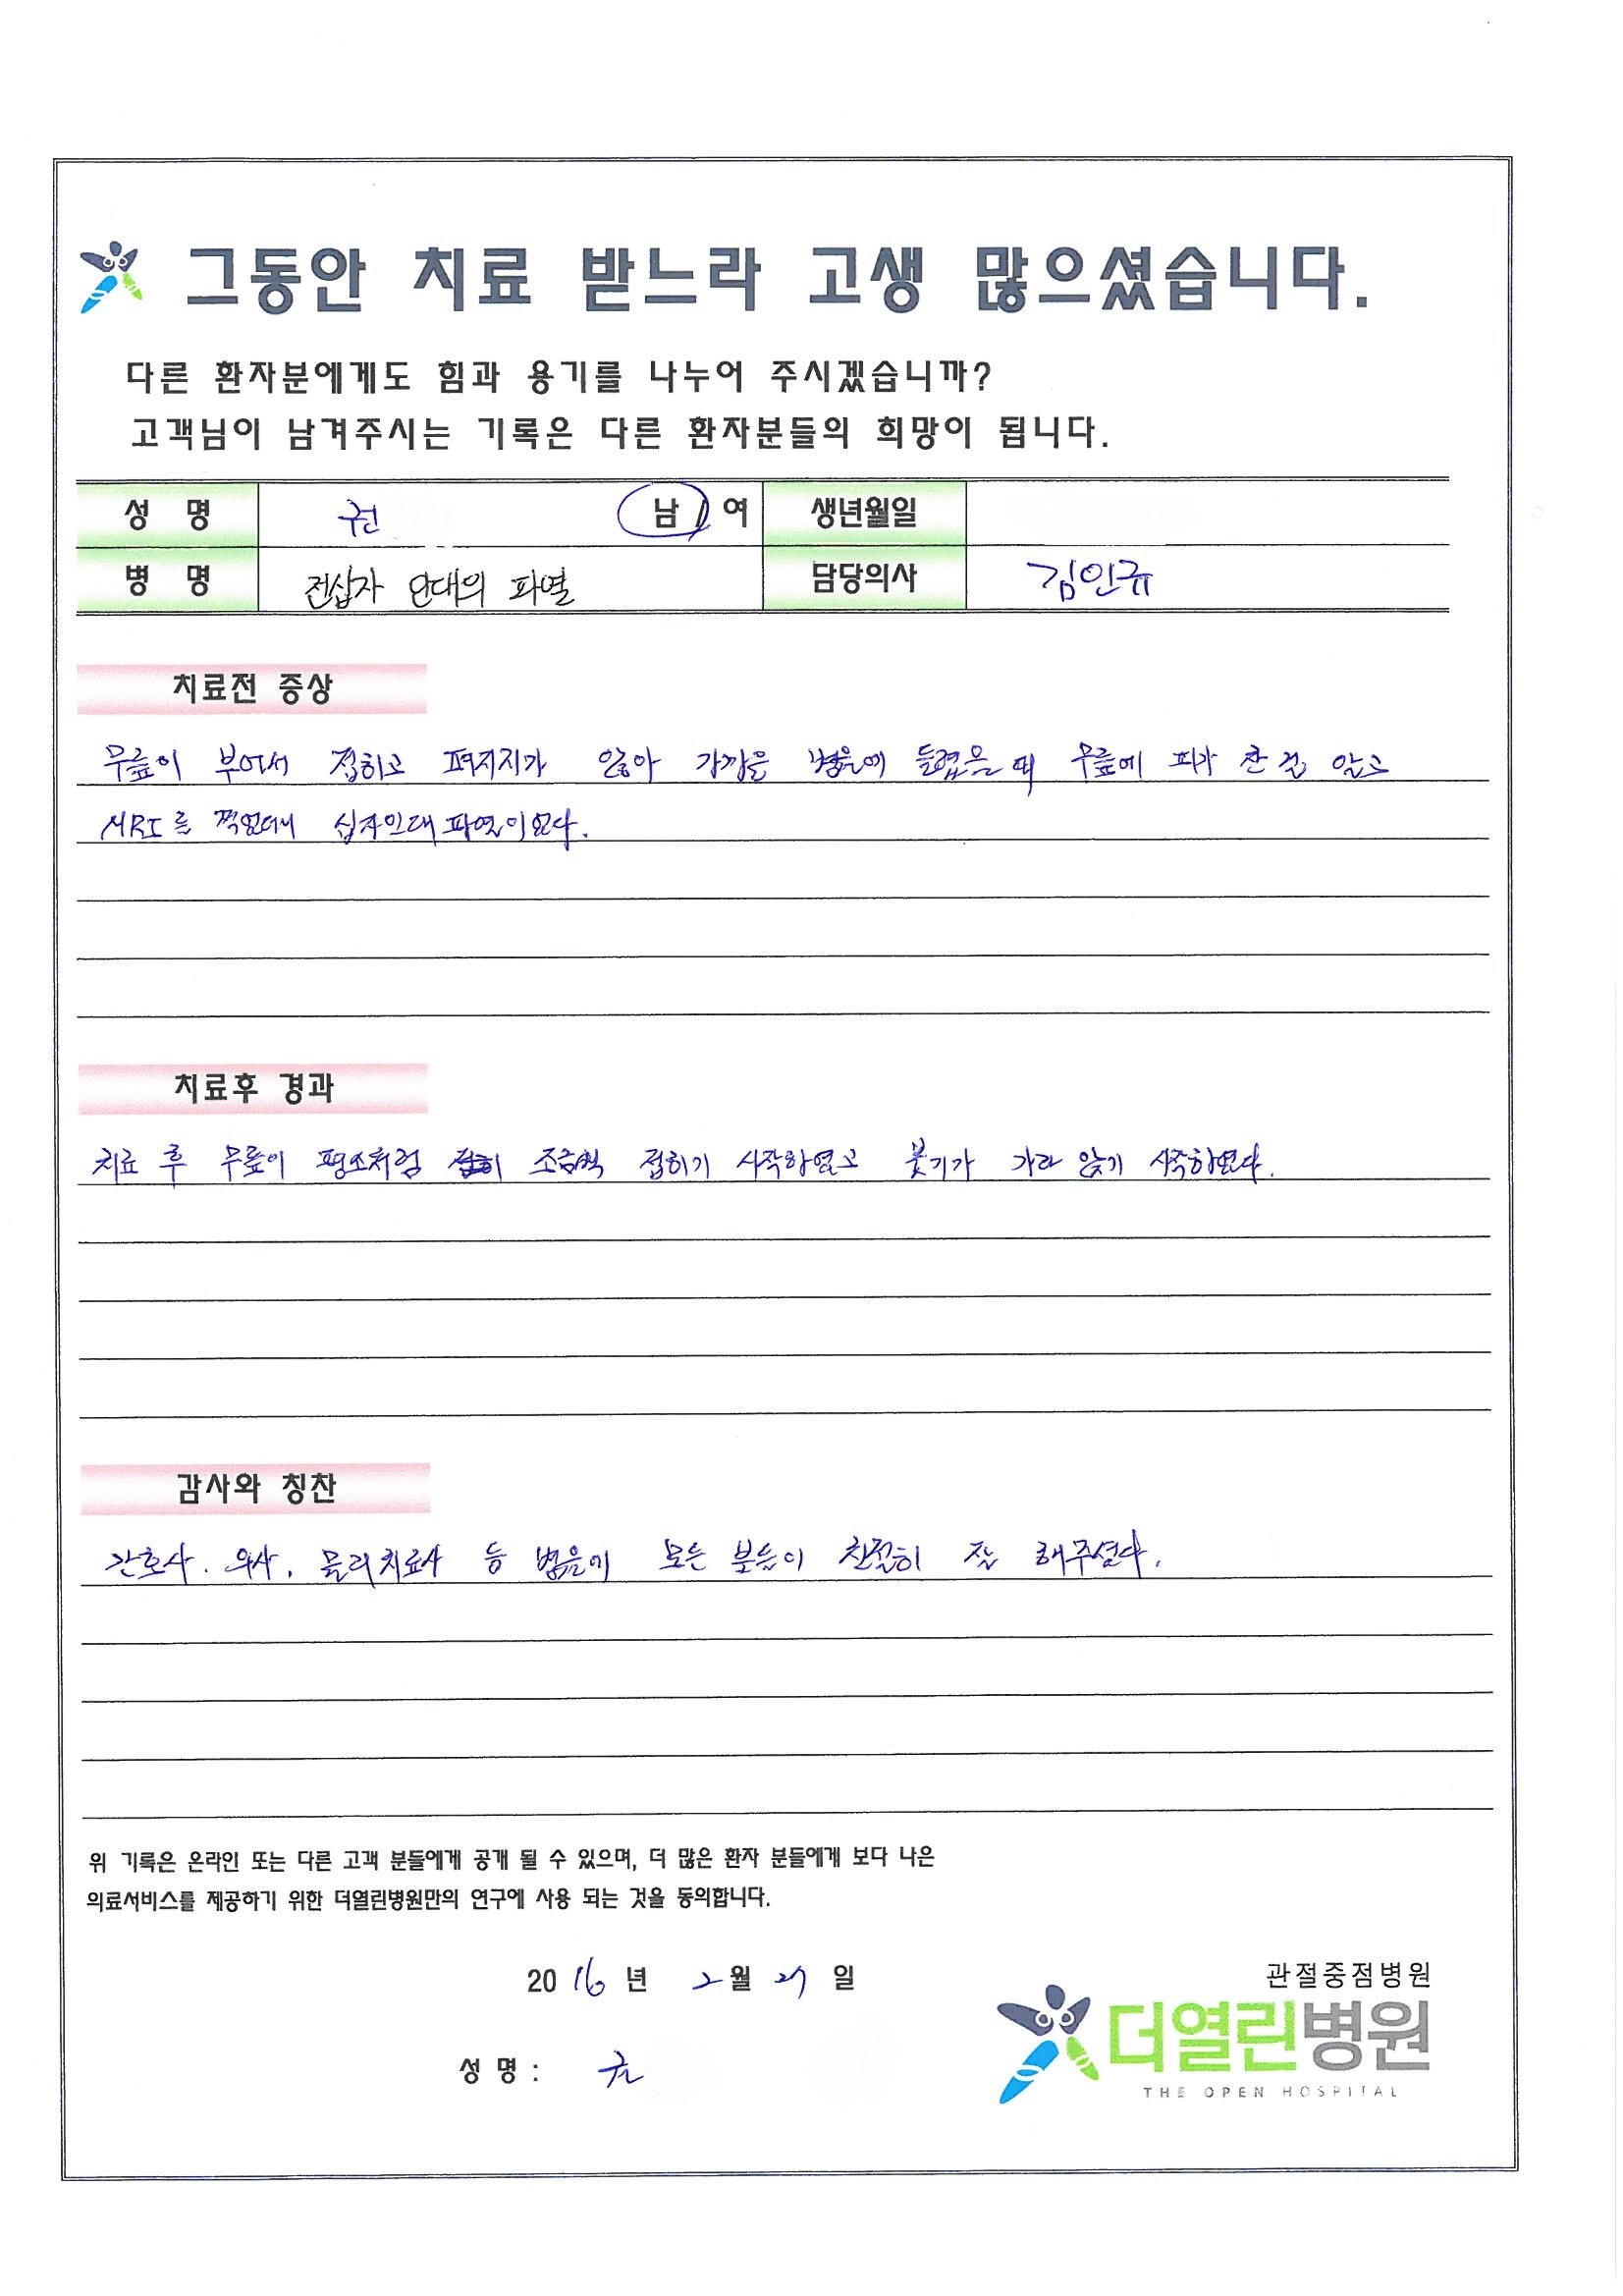 그동안 치료 받느라 고생 많으셨습니다.
다른 환자분에게도 힘과 용기를 나누어 주시겠습니까?
고객님이 남겨주시는 기록은 다른 환자분들의 희망이 됩니다.
성 명 권 남 / 여 생년월일
병 명 전십자 인대의 파열 담당의사 김인규
치료전 증상
무릎이 부어서 접히고 펴지지가 않아 가까운 병원에 들렸을때 무릎에 피가 찬 걸 알고
MRI를 찍었더니 십자인대 파열이었다.
치료후 경과
치료 후 무릎이 평소처럼 조금씩 접히기 시작하였고 붓기가 가라 앉기 시작하였다.
감사와 칭찬
간호사. 의사, 물리치료사 등 병원에 모든 분들이 친절히 잘 해주셨다.
위 기록은 온라인 또는 다른 고객 분들에게 공개 될 수 있으며, 더 많은 환자 분들에게 보다 나은
의료서비스를 제공하기 위한 더열린병원만의 연구에 사용 되는 것을 동의합니다.
2016 년 2 월 27 일
성 명 : 권
관절중점병원
더열린병원
THE OPEN HOSPITAL